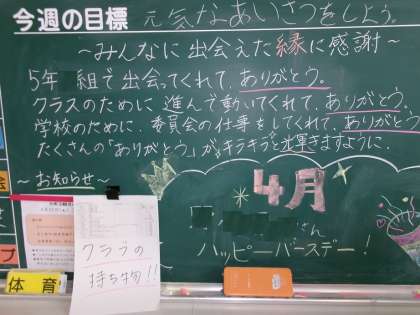 今週の目標 元気なあいさつをしよう。
～みんなに出会えた縁に感謝～
5年 組で出会ってくれて、ありがとう。
クラスのために進んで動いてくれて、ありがとう。
学校のために、委員会の仕事をしてくれて、ありがとう
たくさんの「ありがとう」が、キラキラと出軍きますように．
～お知らせ～
4月
さん
ハッピーバースデー!
クラブの
持ち物!!
体育